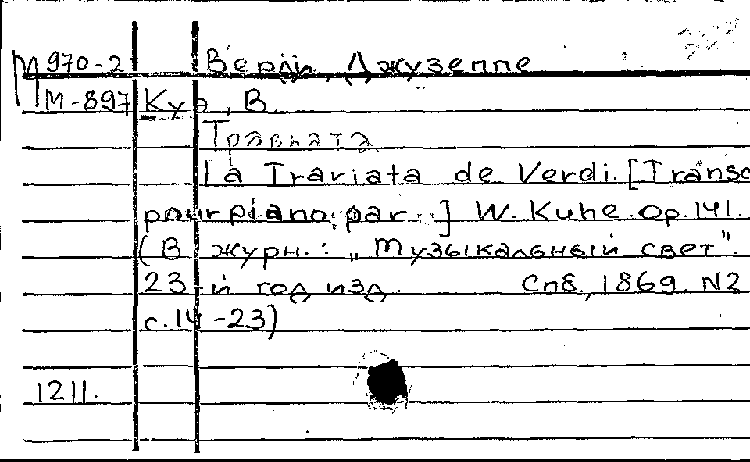 М 970-2 Верди, Джузеппе
М-897 Куэ, В.
Травиата
La Traviata de Verdi. [Transc
pour piano par..] W. Kuhe. Op. 141.
(В журн.: „Музыкальный свет".
23-й год изд. Спб, 1869. N2
с. 14-23)
1211.